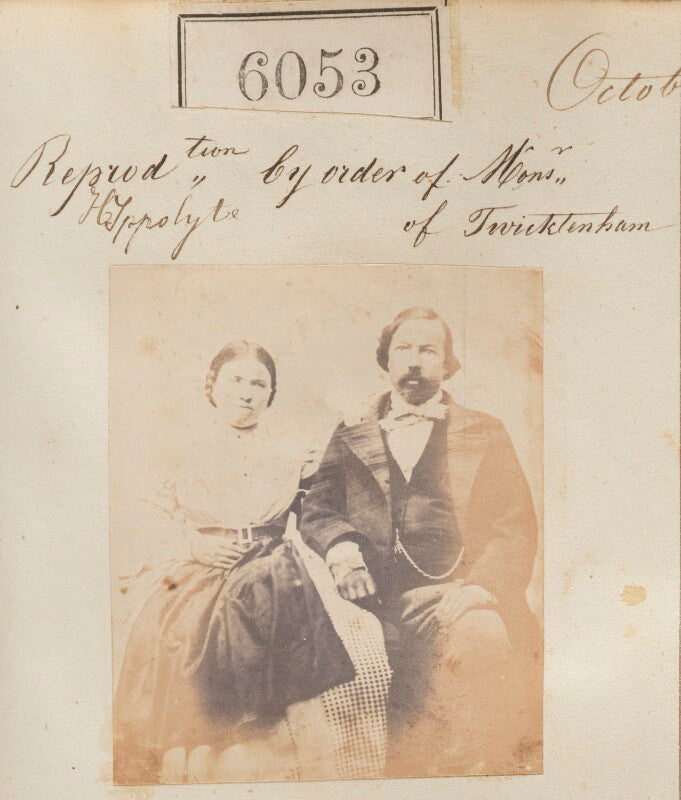 6053
Octob
Reprod„tion by order of Monsr„
Hyppolyte of Twicktenham